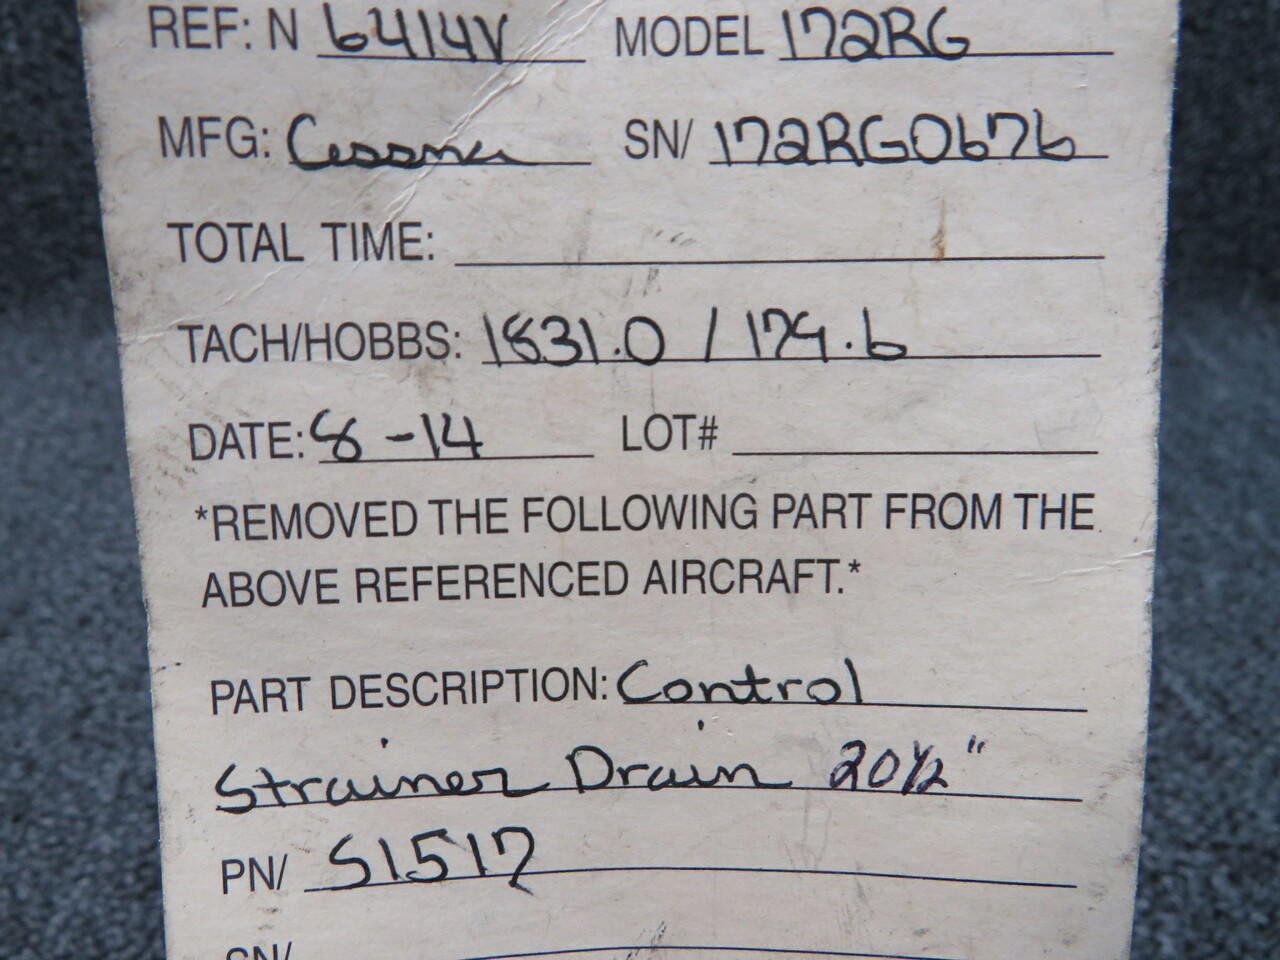 REF: N 6414V MODEL 172RG
MFG: Cessna SN/ 172RG0676
TOTAL TIME:
TACH/HOBBS: 1831.0 / 179.6
DATE: 8-14 LOT#
*REMOVED THE FOLLOWING PART FROM THE
ABOVE REFERENCED AIRCRAFT.*
PART DESCRIPTION: Control
Strainer Drain 20½"
PN/ S1517
SN/